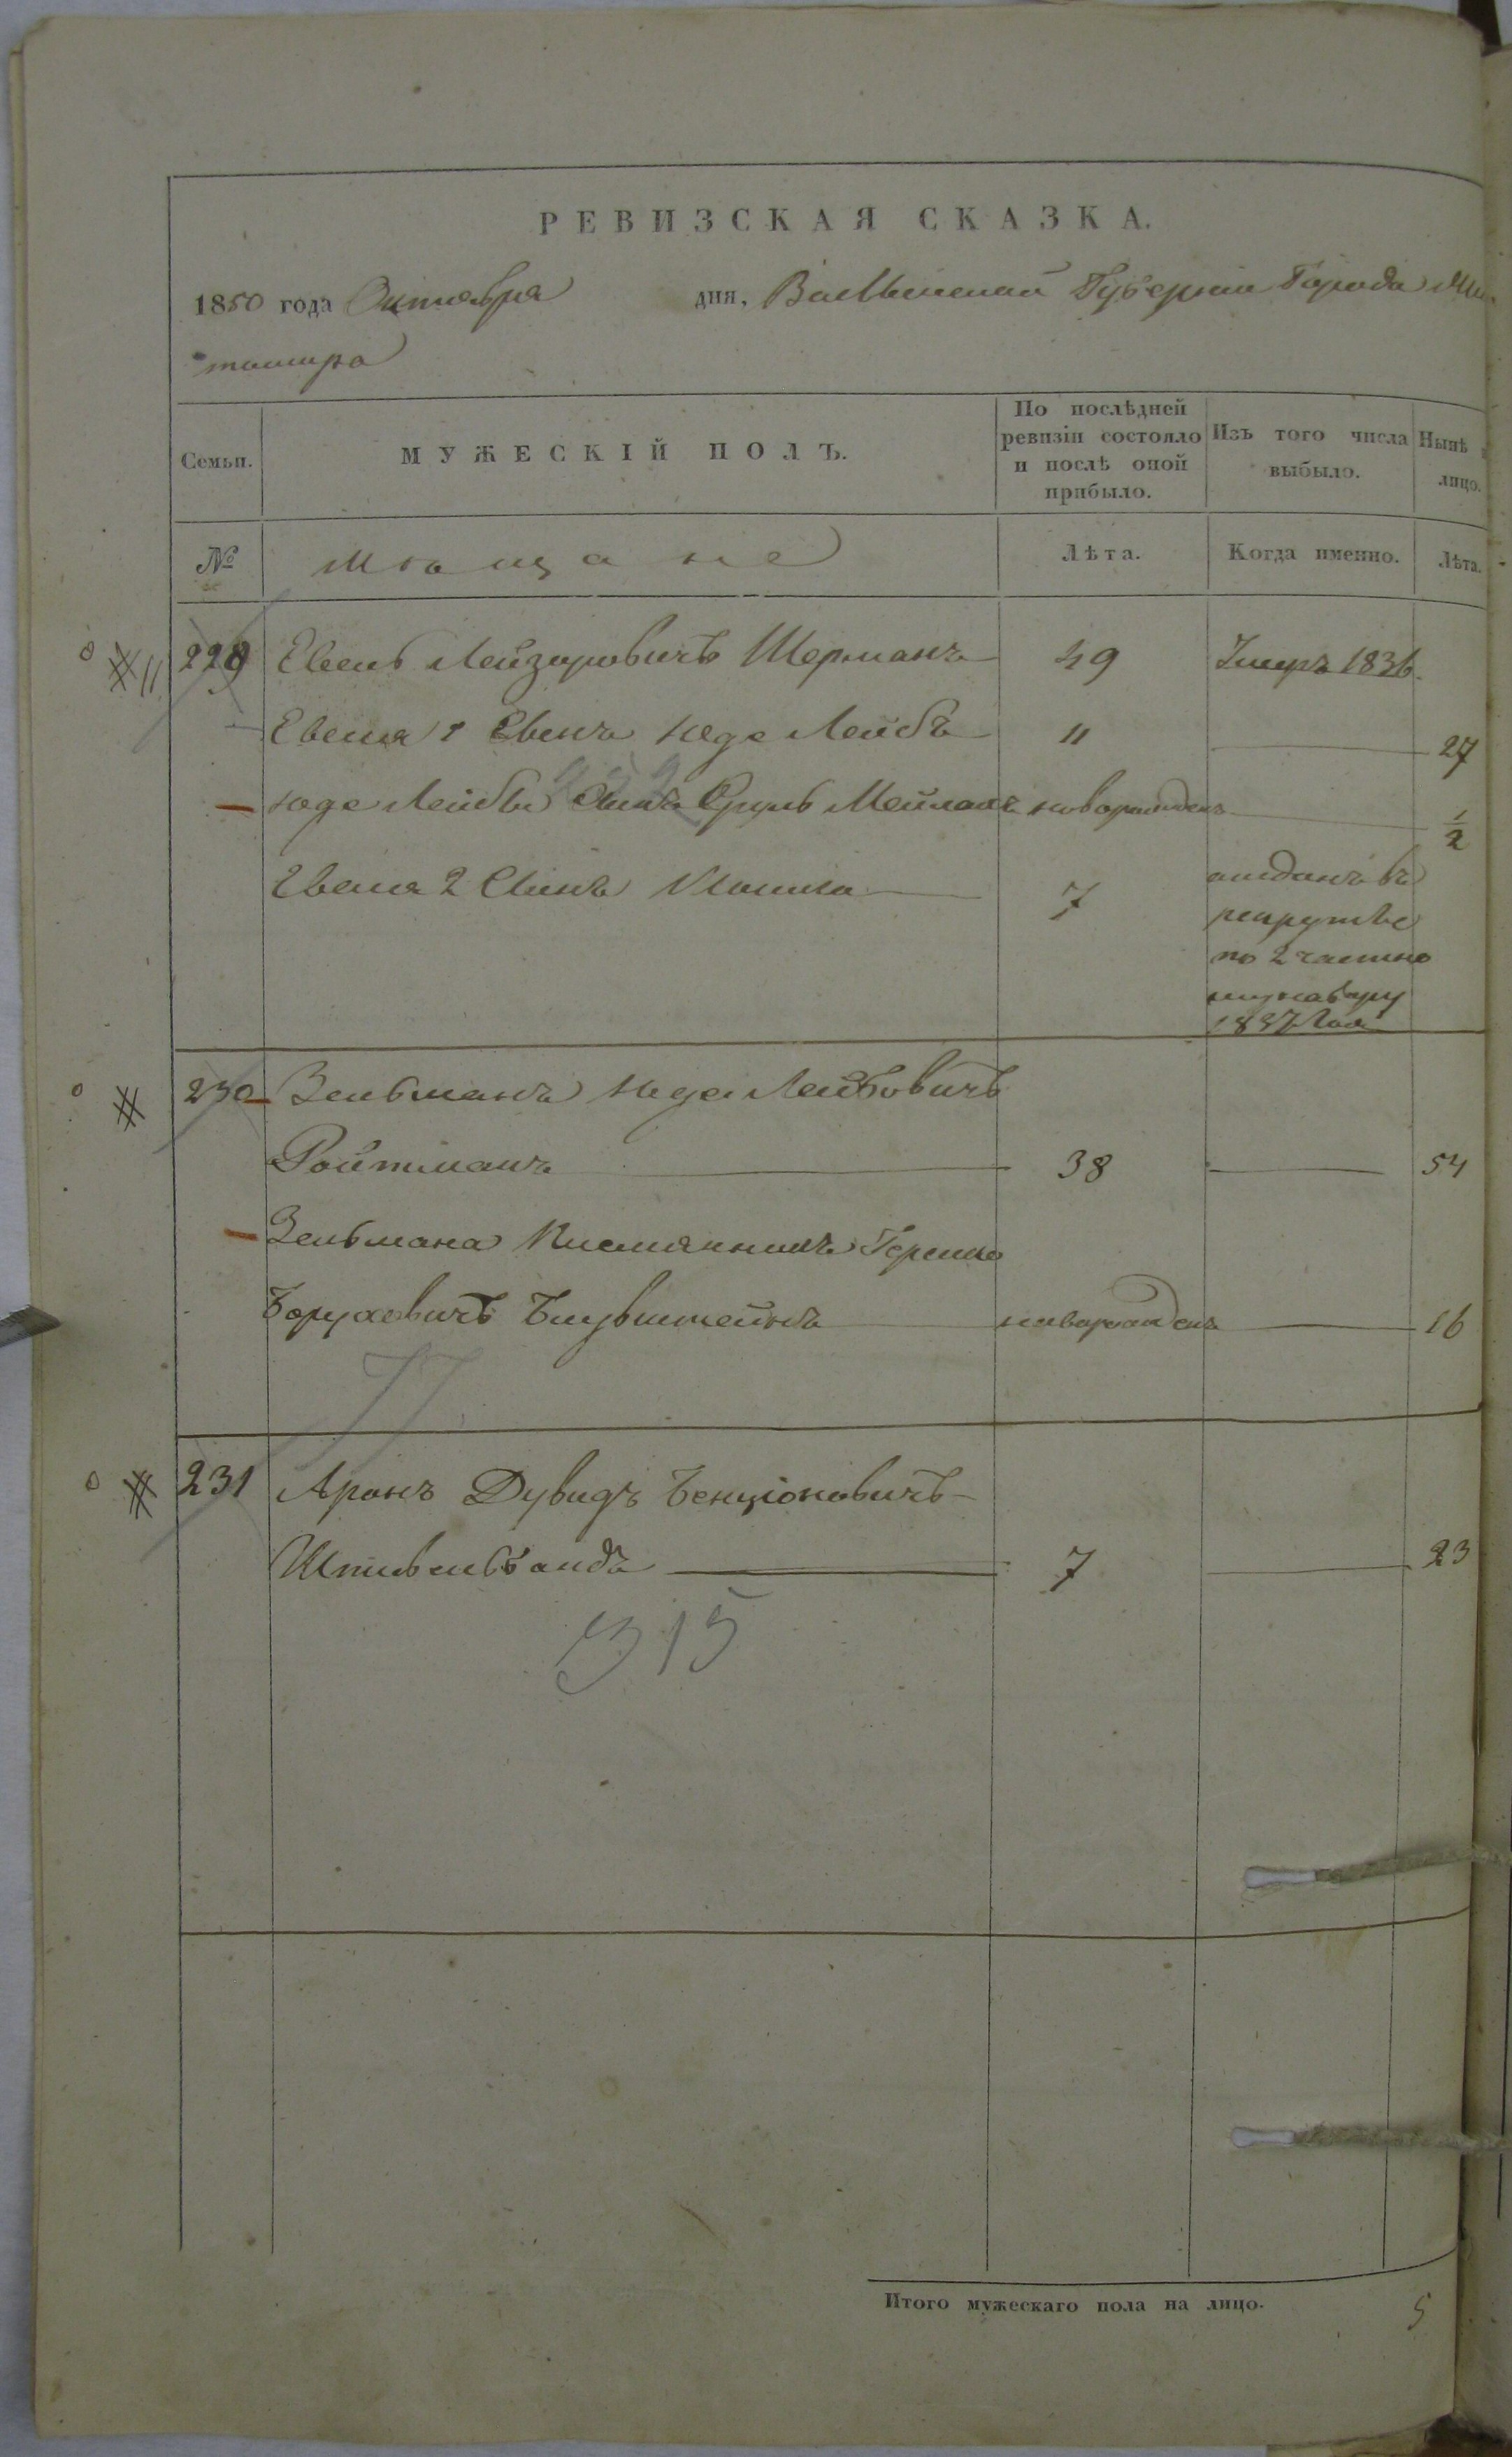 РЕВИЗСКАЯ СКАЗКА.
1850 года Октября дня, Волынской Губернии Города Жи
томира
Семьи. МУЖЕСКІЙ ПОЛЪ. По послѣдней ревизіи состояло и послѣ оной прибыло. Изъ того числа выбыло. Нынѣ лицо.
№ мѣщане Лѣта. Когда именно. Лѣта.
229 Евель Лейзаровичъ Шерманъ 49 Умеръ 1836.
Евеля 1 Сынъ Юде Лейбъ 11 27
Юде Лейбы Сынъ Сруль Мейлахъ новорожденъ 1/2
Евеля 2 Сынъ 7 отданъ въ
рекрутѣ
по 2 частно
му набору
1837 года
230 Зельманъ Юде Лейбовичъ
Ройтманъ 38 54
Зельмана племянникъ Гершко
Боруховичъ Блувштейнъ новорожденъ 16
231 Аронъ Дувидъ Бенціоновичъ
Штивельбандъ 7 23
315
Итого мужескаго пола на лицо. 5